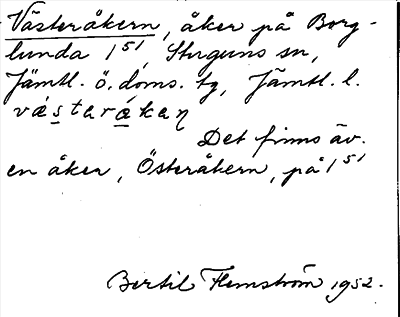 Västeråkern, åker på Borg-
lunda 1⁵¹, Stuguns sn,
Jämtl. ö. doms. tg, Jämtl. l.
vástarákaɳ
Det finns äv.
en åker, Österåkern, på 1⁵¹
Bertil Flemström 1952.